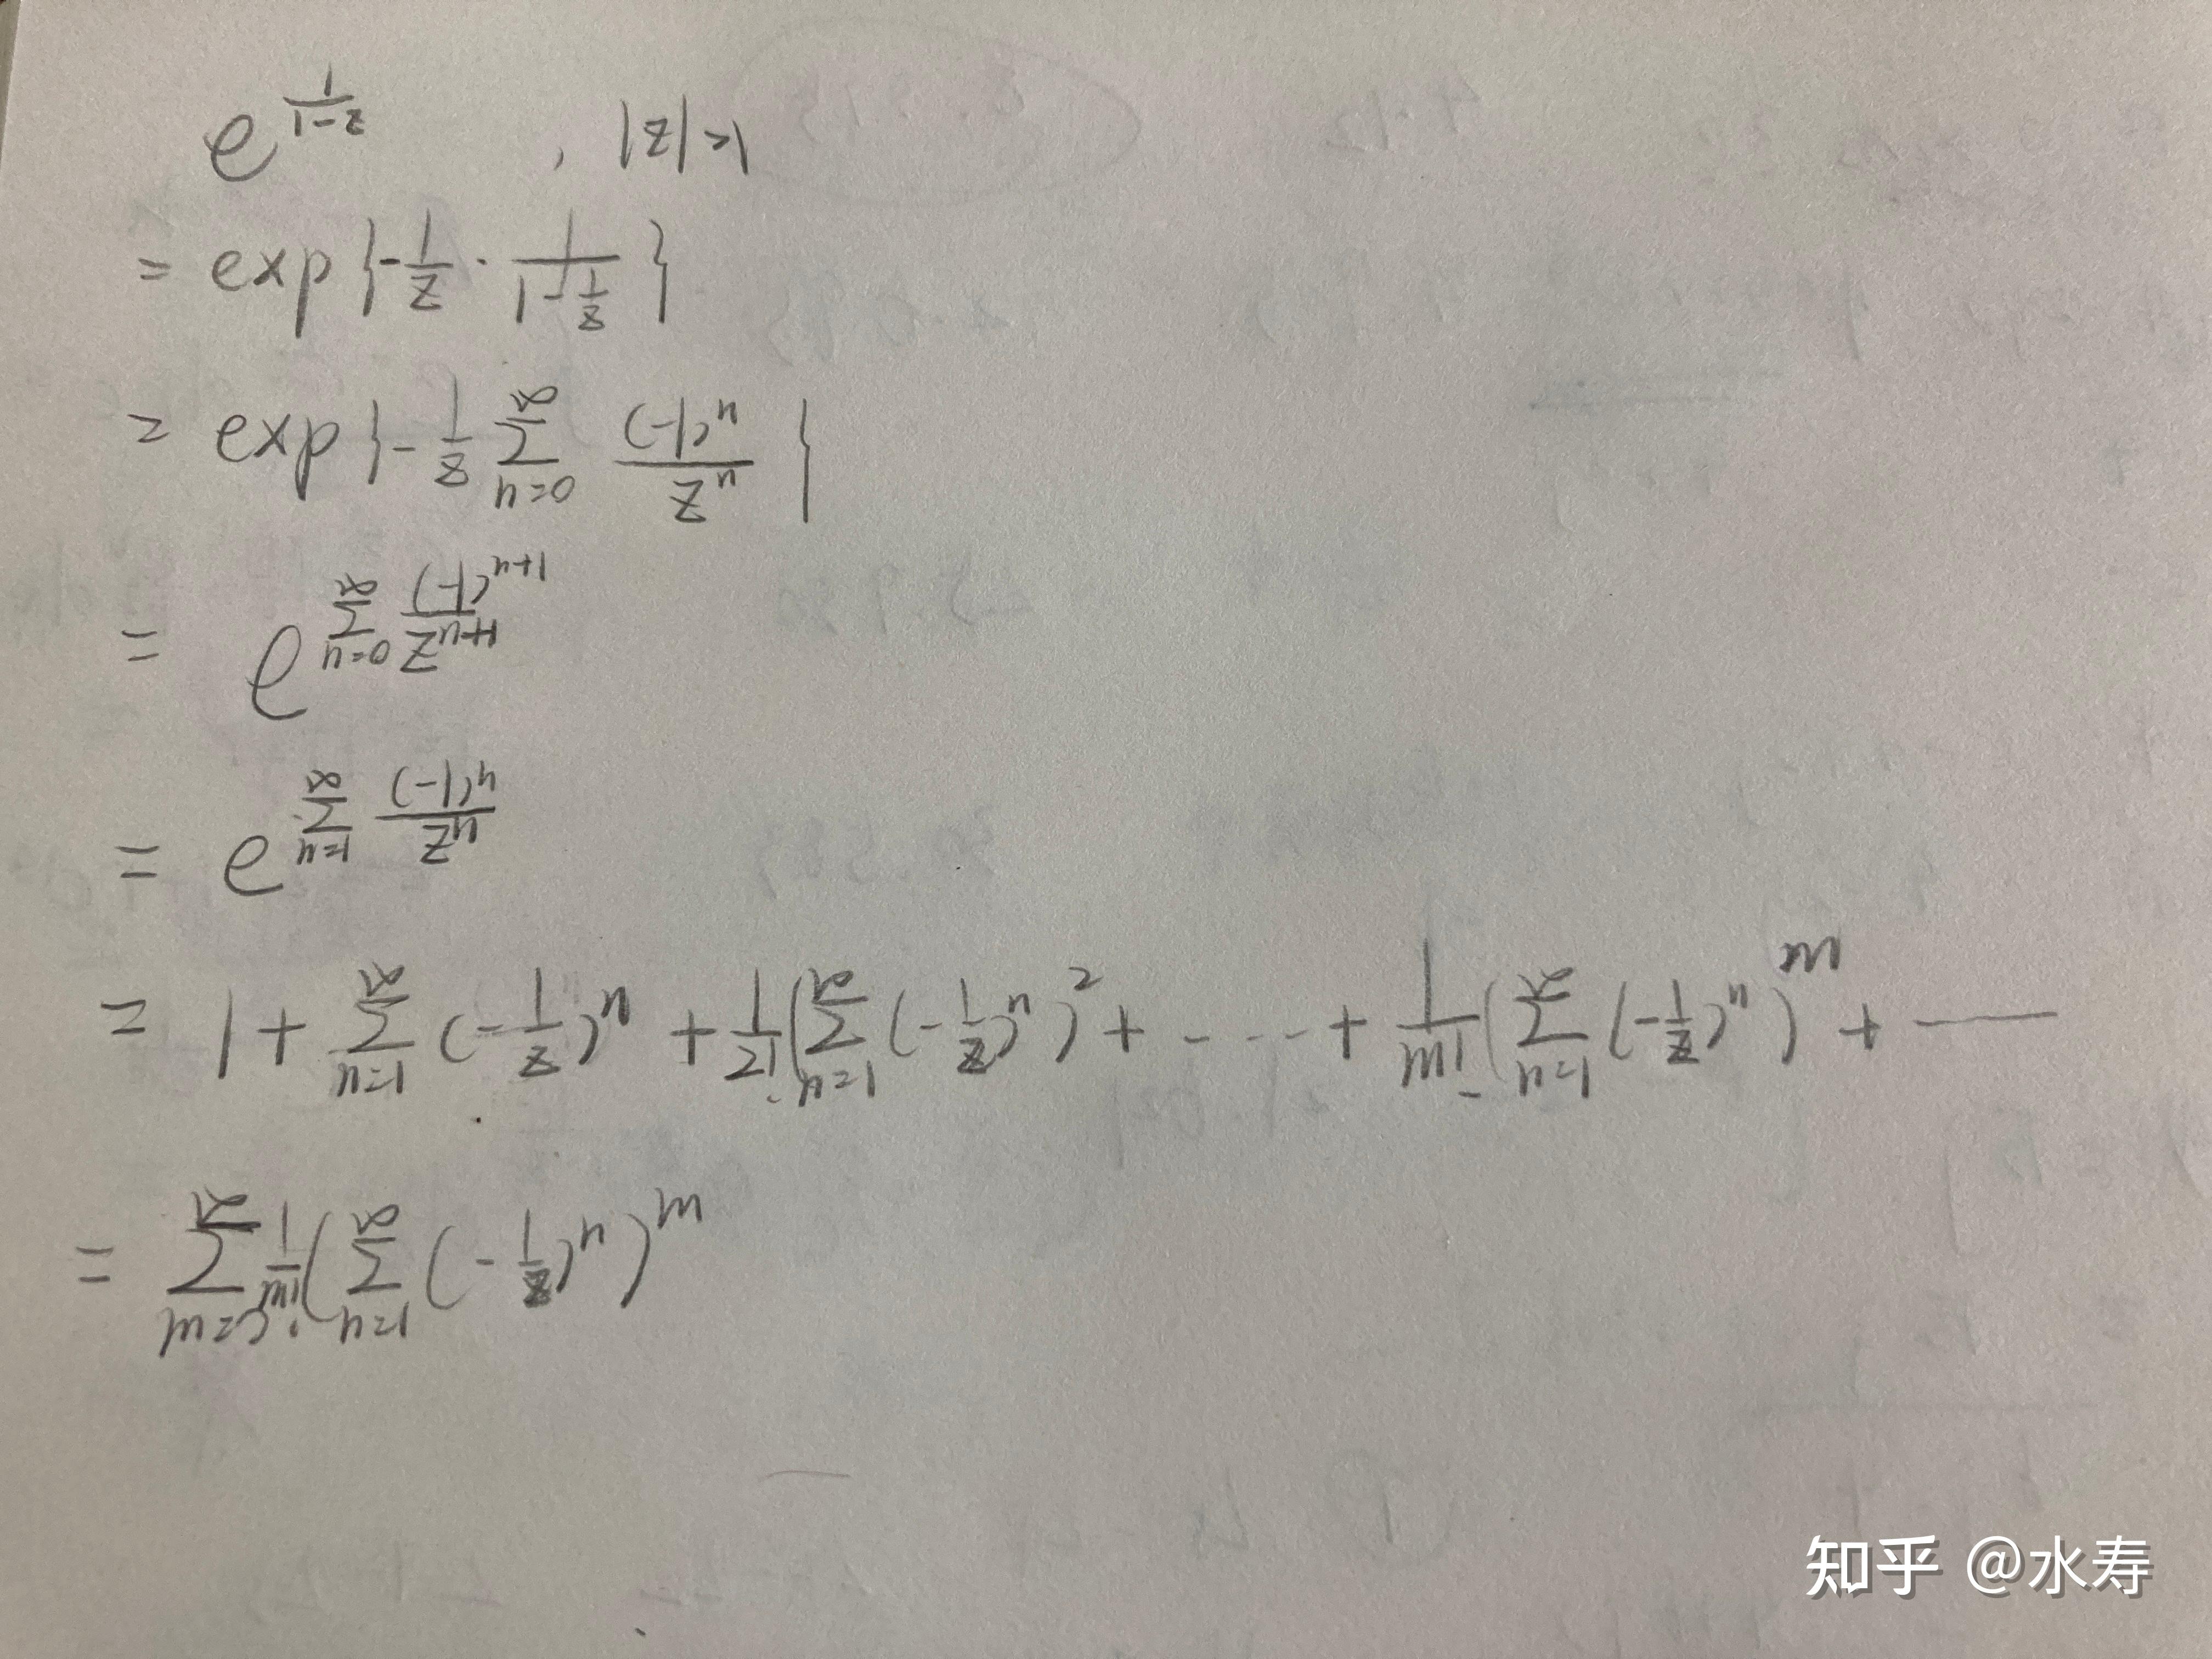 e^{\frac{1}{1-z}} , |z|>1
= exp{-\frac{1}{z} · \frac{1}{1-\frac{1}{z}}}
= exp{-\frac{1}{z} \sum_{n=0}^{∞} \frac{(-1)^n}{z^n}}
= e^{\sum_{n=0}^{∞} \frac{(-1)^{n+1}}{z^{n+1}}}
= e^{\sum_{n=1}^{∞} \frac{(-1)^n}{z^n}}
= 1 + \sum_{n=1}^{∞} (-\frac{1}{z})^n + \frac{1}{2!} (\sum_{n=1}^{∞} (-\frac{1}{z})^n)^2 + ---- + \frac{1}{m!} (\sum_{n=1}^{∞} (-\frac{1}{z})^n)^m + ——
= \sum_{m=0}^{∞} \frac{1}{m!} (\sum_{n=1}^{∞} (-\frac{1}{z})^n)^m
知乎 @水寿